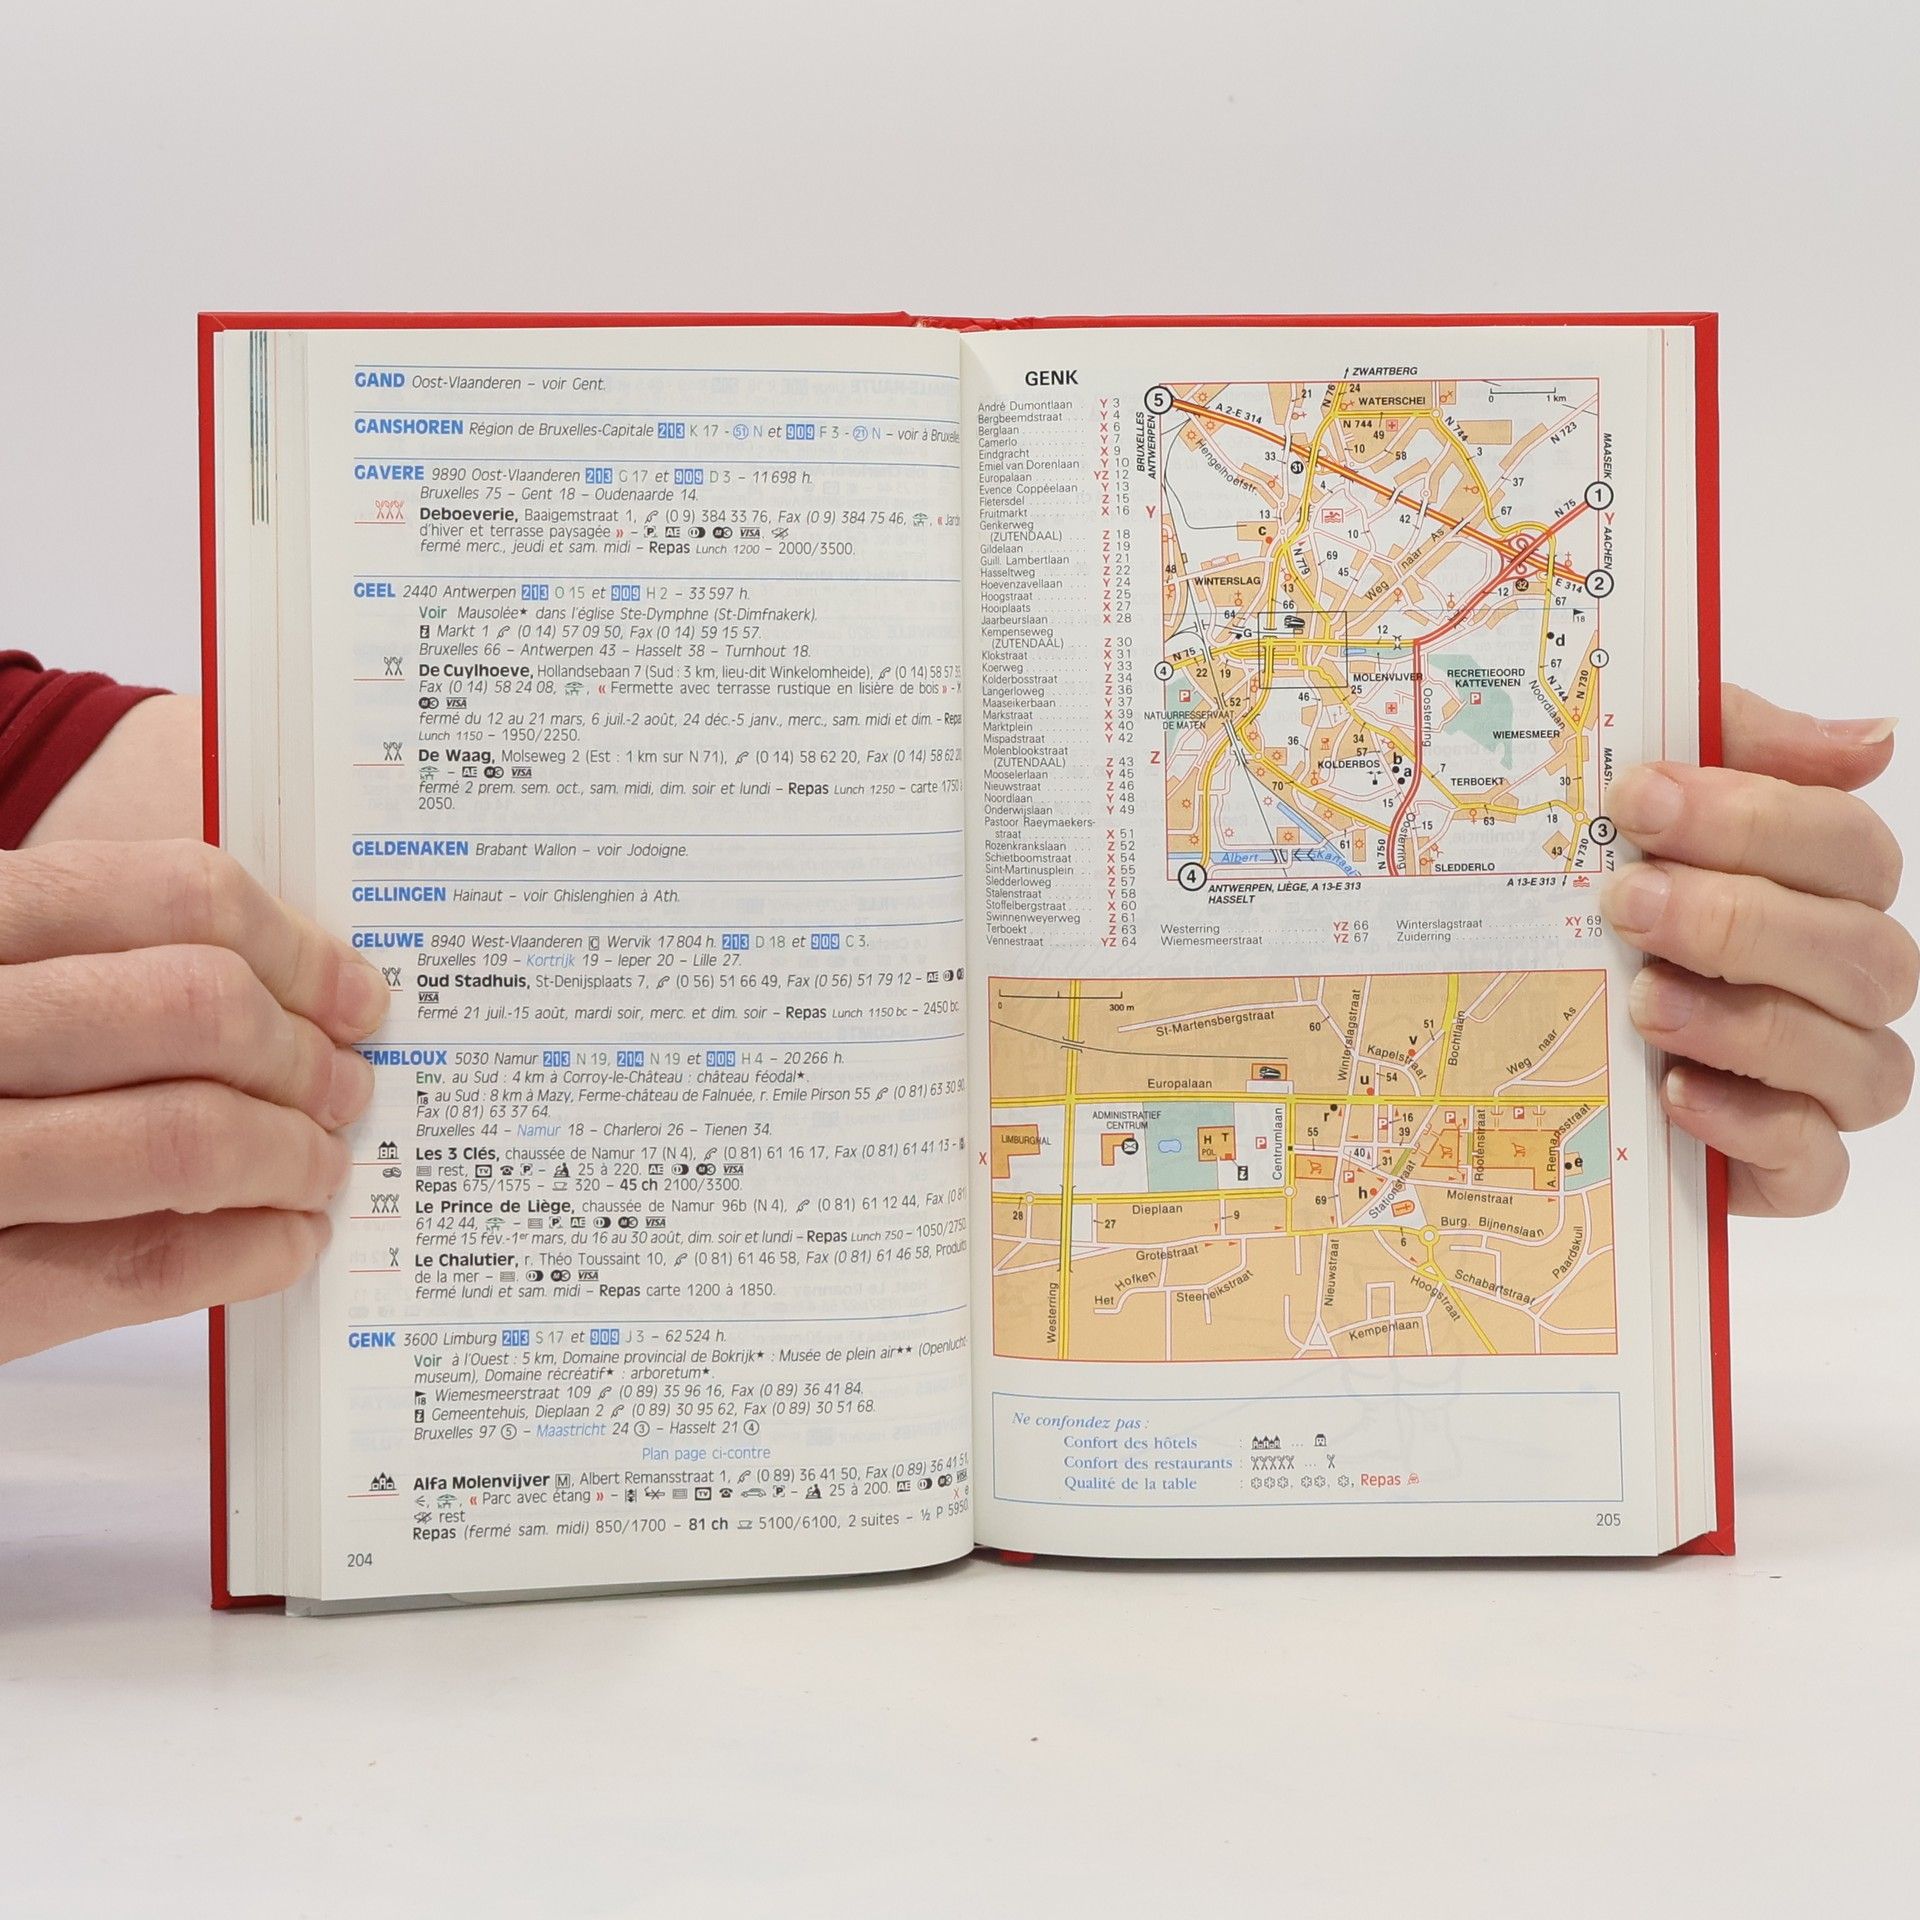 GAND Oost-Vlaanderen – voir Gent.
GANSHOREN Région de Bruxelles-Capitale 213 K 17 - 51 N et 909 F 3 - 21 N – voir à Bruxelles
GAVERE 9890 Oost-Vlaanderen 213 G 17 et 909 D 3 – 11 698 h.
Bruxelles 75 – Gent 18 – Oudenaarde 14.
Deboeverie, Baaigemstraat 1, (0 9) 384 33 76, Fax (0 9) 384 75 46, « Jardin
d'hiver et terrasse paysagée » – P. AE VISA
fermé merc., jeudi et sam. midi – Repas Lunch 1200 – 2000/3500.
GEEL 2440 Antwerpen 213 O 15 et 909 H 2 – 33 597 h.
Voir Mausolée★ dans l'église Ste-Dymphne (St-Dimfnakerk).
Markt 1 (0 14) 57 09 50, Fax (0 14) 59 15 57.
Bruxelles 66 – Antwerpen 43 – Hasselt 38 – Turnhout 18.
De Cuylhoeve, Hollandsebaan 7 (Sud : 3 km, lieu-dit Winkelomheide), (0 14) 58 57
Fax (0 14) 58 24 08, « Fermette avec terrasse rustique en lisière de bois » -
VISA
fermé du 12 au 21 mars, 6 juil.-2 août, 24 déc.-5 janv., merc., sam. midi et dim. – Repas
Lunch 1150 – 1950/2250.
De Waag, Molseweg 2 (Est : 1 km sur N 71), (0 14) 58 62 20, Fax (0 14) 58 62
– AE VISA
fermé 2 prem. sem. oct., sam. midi, dim. soir et lundi – Repas Lunch 1250 – carte 1750 à
2050.
GELDENAKEN Brabant Wallon – voir Jodoigne.
GELLINGEN Hainaut – voir Ghislenghien à Ath.
GELUWE 8940 West-Vlaanderen C Wervik 17 804 h. 213 D 18 et 909 C 3.
Bruxelles 109 – Kortrijk 19 – Ieper 20 – Lille 27.
Oud Stadhuis, St-Denijsplaats 7, (0 56) 51 66 49, Fax (0 56) 51 79 12 – AE
VISA
fermé 21 juil.-15 août, mardi soir, merc. et dim. soir – Repas Lunch 1150 bc – 2450 bc.
EMBLOUX 5030 Namur 213 N 19, 214 N 19 et 909 H 4 – 20 266 h.
Env. au Sud : 4 km à Corroy-le-Château : château féodal★.
18 au Sud : 8 km à Mazy, Ferme-château de Falnuée, r. Emile Pirson 55 (0 81) 63 30 90,
Fax (0 81) 63 37 64.
Bruxelles 44 – Namur 18 – Charleroi 26 – Tienen 34.
Les 3 Clés, chaussée de Namur 17 (N 4), (0 81) 61 16 17, Fax (0 81) 61 41 13 –
rest, TV P – 25 à 220. AE VISA
Repas 675/1575 – 320 – 45 ch 2100/3300.
Le Prince de Liège, chaussée de Namur 96b (N 4), (0 81) 61 12 44, Fax (0 81)
61 42 44, – P. AE VISA
fermé 15 fév.-1er mars, du 16 au 30 août, dim. soir et lundi – Repas Lunch 750 – 1050/2750.
Le Chalutier, r. Théo Toussaint 10, (0 81) 61 46 58, Fax (0 81) 61 46 58, Produits
de la mer – VISA
fermé lundi et sam. midi – Repas carte 1200 à 1850.
GENK 3600 Limburg 213 S 17 et 909 J 3 – 62 524 h.
Voir à l'Ouest : 5 km, Domaine provincial de Bokrijk★ : Musée de plein air★★ (Openlucht-
museum), Domaine récréatif★ : arboretum★.
18 Wiemesmeerstraat 109 (0 89) 35 96 16, Fax (0 89) 36 41 84.
Gemeentehuis, Dieplaan 2 (0 89) 30 95 62, Fax (0 89) 30 51 68.
Bruxelles 97 5 – Maastricht 24 3 – Hasselt 21 4
Plan page ci-contre
Alfa Molenvijver M, Albert Remansstraat 1, (0 89) 36 41 50, Fax (0 89) 36 41 51,
« Parc avec étang » – TV P – 25 à 200. AE VISA
rest X e
Repas (fermé sam. midi) 850/1700 – 81 ch 5100/6100, 2 suites – ½ P 5950.
204
GENK
André Dumontlaan Y 3
Bergbeemdstraat Y 4
Berglaan X 6
Camerlo Y 7
Eindgracht X 9
Emiel van Dorenlaan Y 10
Europalaan YZ 12
Evence Coppéelaan Y 13
Fletersdel Z 15
Fruitmarkt X 16
Genkerweg
(ZUTENDAAL) Z 18
Gildelaan Z 19
Guill. Lambertlaan Y 21
Hasseltweg Z 22
Hoevenzavellaan Y 24
Hoogstraat Z 25
Hooiplaats X 27
Jaarbeurslaan X 28
Kempenseweg
(ZUTENDAAL) Z 30
Klokstraat X 31
Koerweg Y 33
Kolderbosstraat Z 34
Langerloweg Z 36
Maaseikerbaan Y 37
Markstraat X 39
Marktplein X 40
Mispadstraat Y 42
Molenblookstraat
(ZUTENDAAL) Z 43
Mooselerlaan Y 45
Nieuwstraat Z 46
Noordlaan Y 48
Onderwijslaan Y 49
Pastoor Raeymaekers-
straat X 51
Rozenkranslaan Z 52
Schietboomstraat X 54
Sint-Martinusplein X 55
Sledderloweg Z 57
Stalenstraat Y 58
Stoffelbergstraat X 60
Swinnenweyerweg Z 61
Terboekt Z 63
Vennestraat YZ 64
Westerring YZ 66
Wiemesmeerstraat YZ 67
Winterslagstraat XY 69
Zuiderring Z 70
ZWARTBERG
BRUXELLES
ANTWERPEN
5
A 2-E 314
21
N 76
24
WATERSCHEI
0 1 km
N 744
49
N 744
N 723
MAASEIK
Hengelhoefstr.
33
31
10
58
3
4
37
1
N 75
13
42
67
Y
c
10
N 779
69
45
Weg naar As
AACHEN
48
WINTERSLAG
13
66
12
32
E 314
2
67
18
64
G
12
d
N 75
4
22
19
MOLENVIJVER
25
46
RECRETIEOORD
KATTEVENEN
67
N 744
N 730
1
52
NATUURRESERVAAT
DE MATEN
Oosterring
Noordlaan
Z
36
34
57
WIEMESMEER
KOLDERBOS
b
a
7
TERBOEKT
30
70
15
63
18
3
Albert Kanaal
61
N 750
15
Oosterring
SLEDDERLO
43
N 730
N 77
4
ANTWERPEN, LIÈGE, A 13-E 313
HASSELT
A 13-E 313
0 300 m
St-Martensbergstraat
60
Winterslagstraat
51
v
Kapelstraat
Bochtlaan
Weg naar As
Europalaan
u
54
ADMINISTRATIEF
CENTRUM
LIMBURGHAL
H T
POL.
P
Centrumlaan
r
55
16
39
Rootenstraat
A. Remansstraat
X
40
31
Stationsstraat
e
X
69
h
Molenstraat
28
27
Dieplaan
9
Burg. Bijnenslaan
6
Grotestraat
Paardskuil
Hofken
Het
Steeneikstraat
Nieuwstraat
Schabartstraat
Hoogstraat
Westerring
Kempenlaan
Ne confondez pas :
Confort des hôtels : ...
Confort des restaurants : ...
Qualité de la table : , , , Repas
205